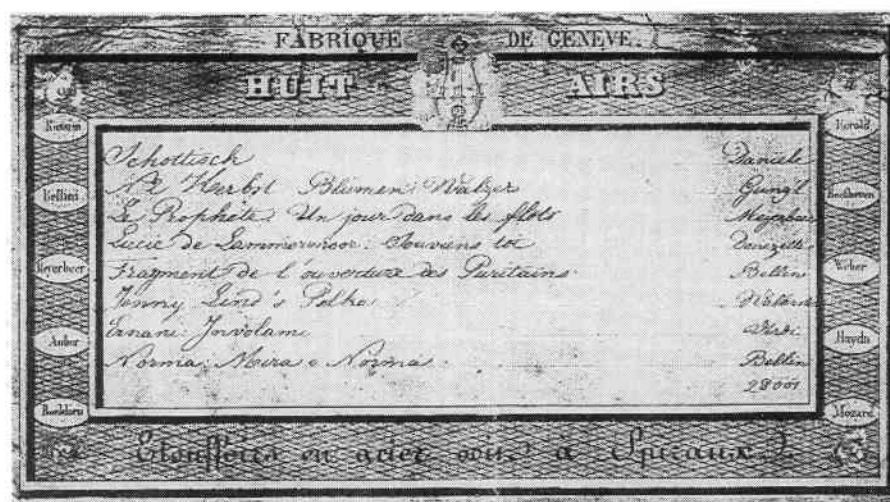 FABRIQUE DE GENEVE.
HUIT AIRS
Rossini
Bellini
Meyerbeer
Auber
Boeldieu
Herold
Beethoven
Weber
Haydn
Mozard
Schottisch Daniele
Herbst Blumen: Walzer Gung'l
Le Prophète: Un jour dans les flots Meyerbeer
Lucie de Lammermoor: Souviens toi
Fragment de l'ouverture des Puritains Bellin
Jenny Lind's Polka
Ernani: Involami Verdi
Norma: Mira o Norma Bellin
28001
Etouffoirs en acier à Spiraux